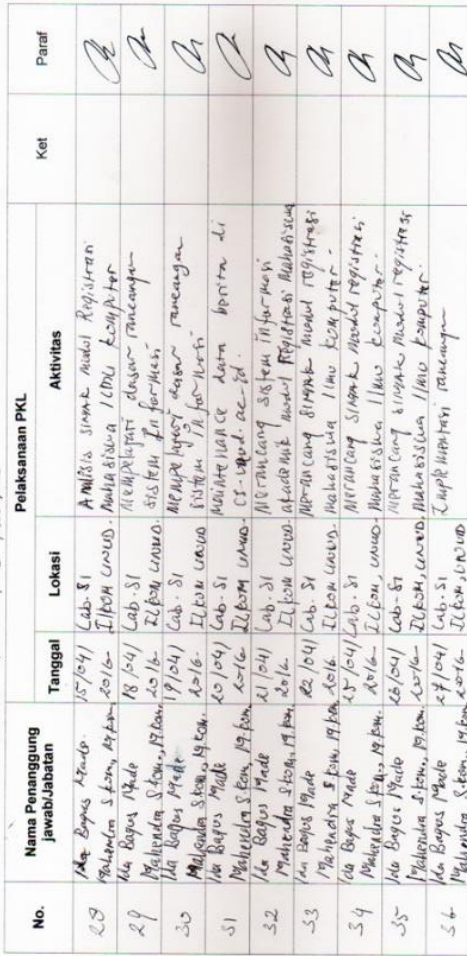 Pelaksanaan PKL
No.
Nama Penanggung jawab/Jabatan
Tanggal
Lokasi
Aktivitas
Ket
Paraf
28
Ida Bagus Made
Mahendra S.kom., M.kom.
15/04/
2016
Lab. S1
Ilkom UNUD.
Analisis simak modul Registrasi
mahasiswa ilmu komputer
29
Ida Bagus Made
Mahendra S.kom., M.kom.
18/04/
2016
Lab. S1
Ilkom UNUD
Mempelajari dasar rancangan
sistem informasi
30
Ida Bagus Made
Mahendra S.kom., M.kom.
19/04/
2016
Lab. S1
Ilkom UNUD
Mempelajari dasar rancangan
sistem informasi
31
Ida Bagus Made
Mahendra S.kom, M.kom
20/04/
2016
Lab. S1
Ilkom UNUD.
Maintenance data berita di
cs.unud.ac.id.
32
Ida Bagus Made
Mahendra S.kom, M.kom.
21/04/
2016
Lab. S1
Ilkom UNUD.
Merancang sistem informasi
akademik modul Registrasi Mahasiswa
33
Ida Bagus Made
Mahendra S.kom, M.kom
22/04/
2016
Lab. S1
Ilkom UNUD.
Merancang SIMAK modul registrasi
mahasiswa Ilmu komputer.
34
Ida Bagus Made
Mahendra S.kom., M.kom
25/04/
2016
Lab. S1
Ilkom, UNUD.
Merancang SIMAK modul registrasi
mahasiswa Ilmu komputer.
35
Ida Bagus Made
Mahendra S.kom., M.kom.
26/04/
2016
Lab. S1
Ilkom, UNUD.
Merancang simak modul registrasi
mahasiswa Ilmu komputer.
36
Ida Bagus Made
Mahendra S.kom, M.kom
27/04/
2016
Lab. S1
Ilkom, UNUD
Implementasi rancangan